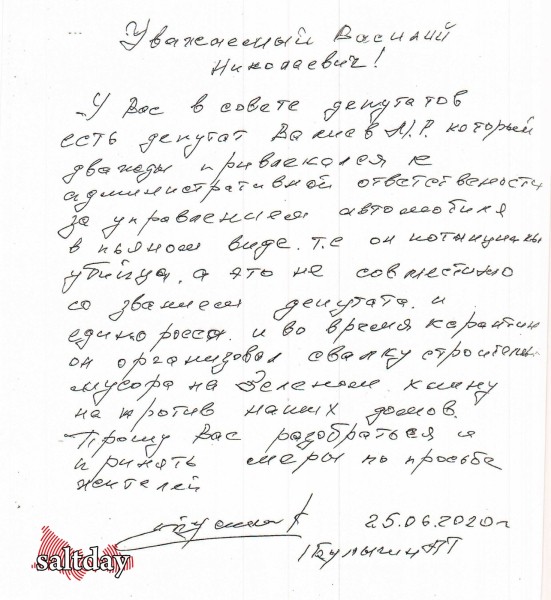 Уважаемый Василий
Николаевич!
У Вас в совете депутатов
есть депутат Валиев М.Р. который
дважды привлекался к
административной ответствености
за управлением автомобиля
в пьяном виде. т.е он потынциальны
убийца, а это не совместимо
со званием депутата. и
единоросса. и во время карантин
он организовал свалку строительн
мусора на Зеленом клину
на против наших домов.
Прошу Вас разобраться и
принять меры по просьбе
жителей
25.06.2020г
saltday